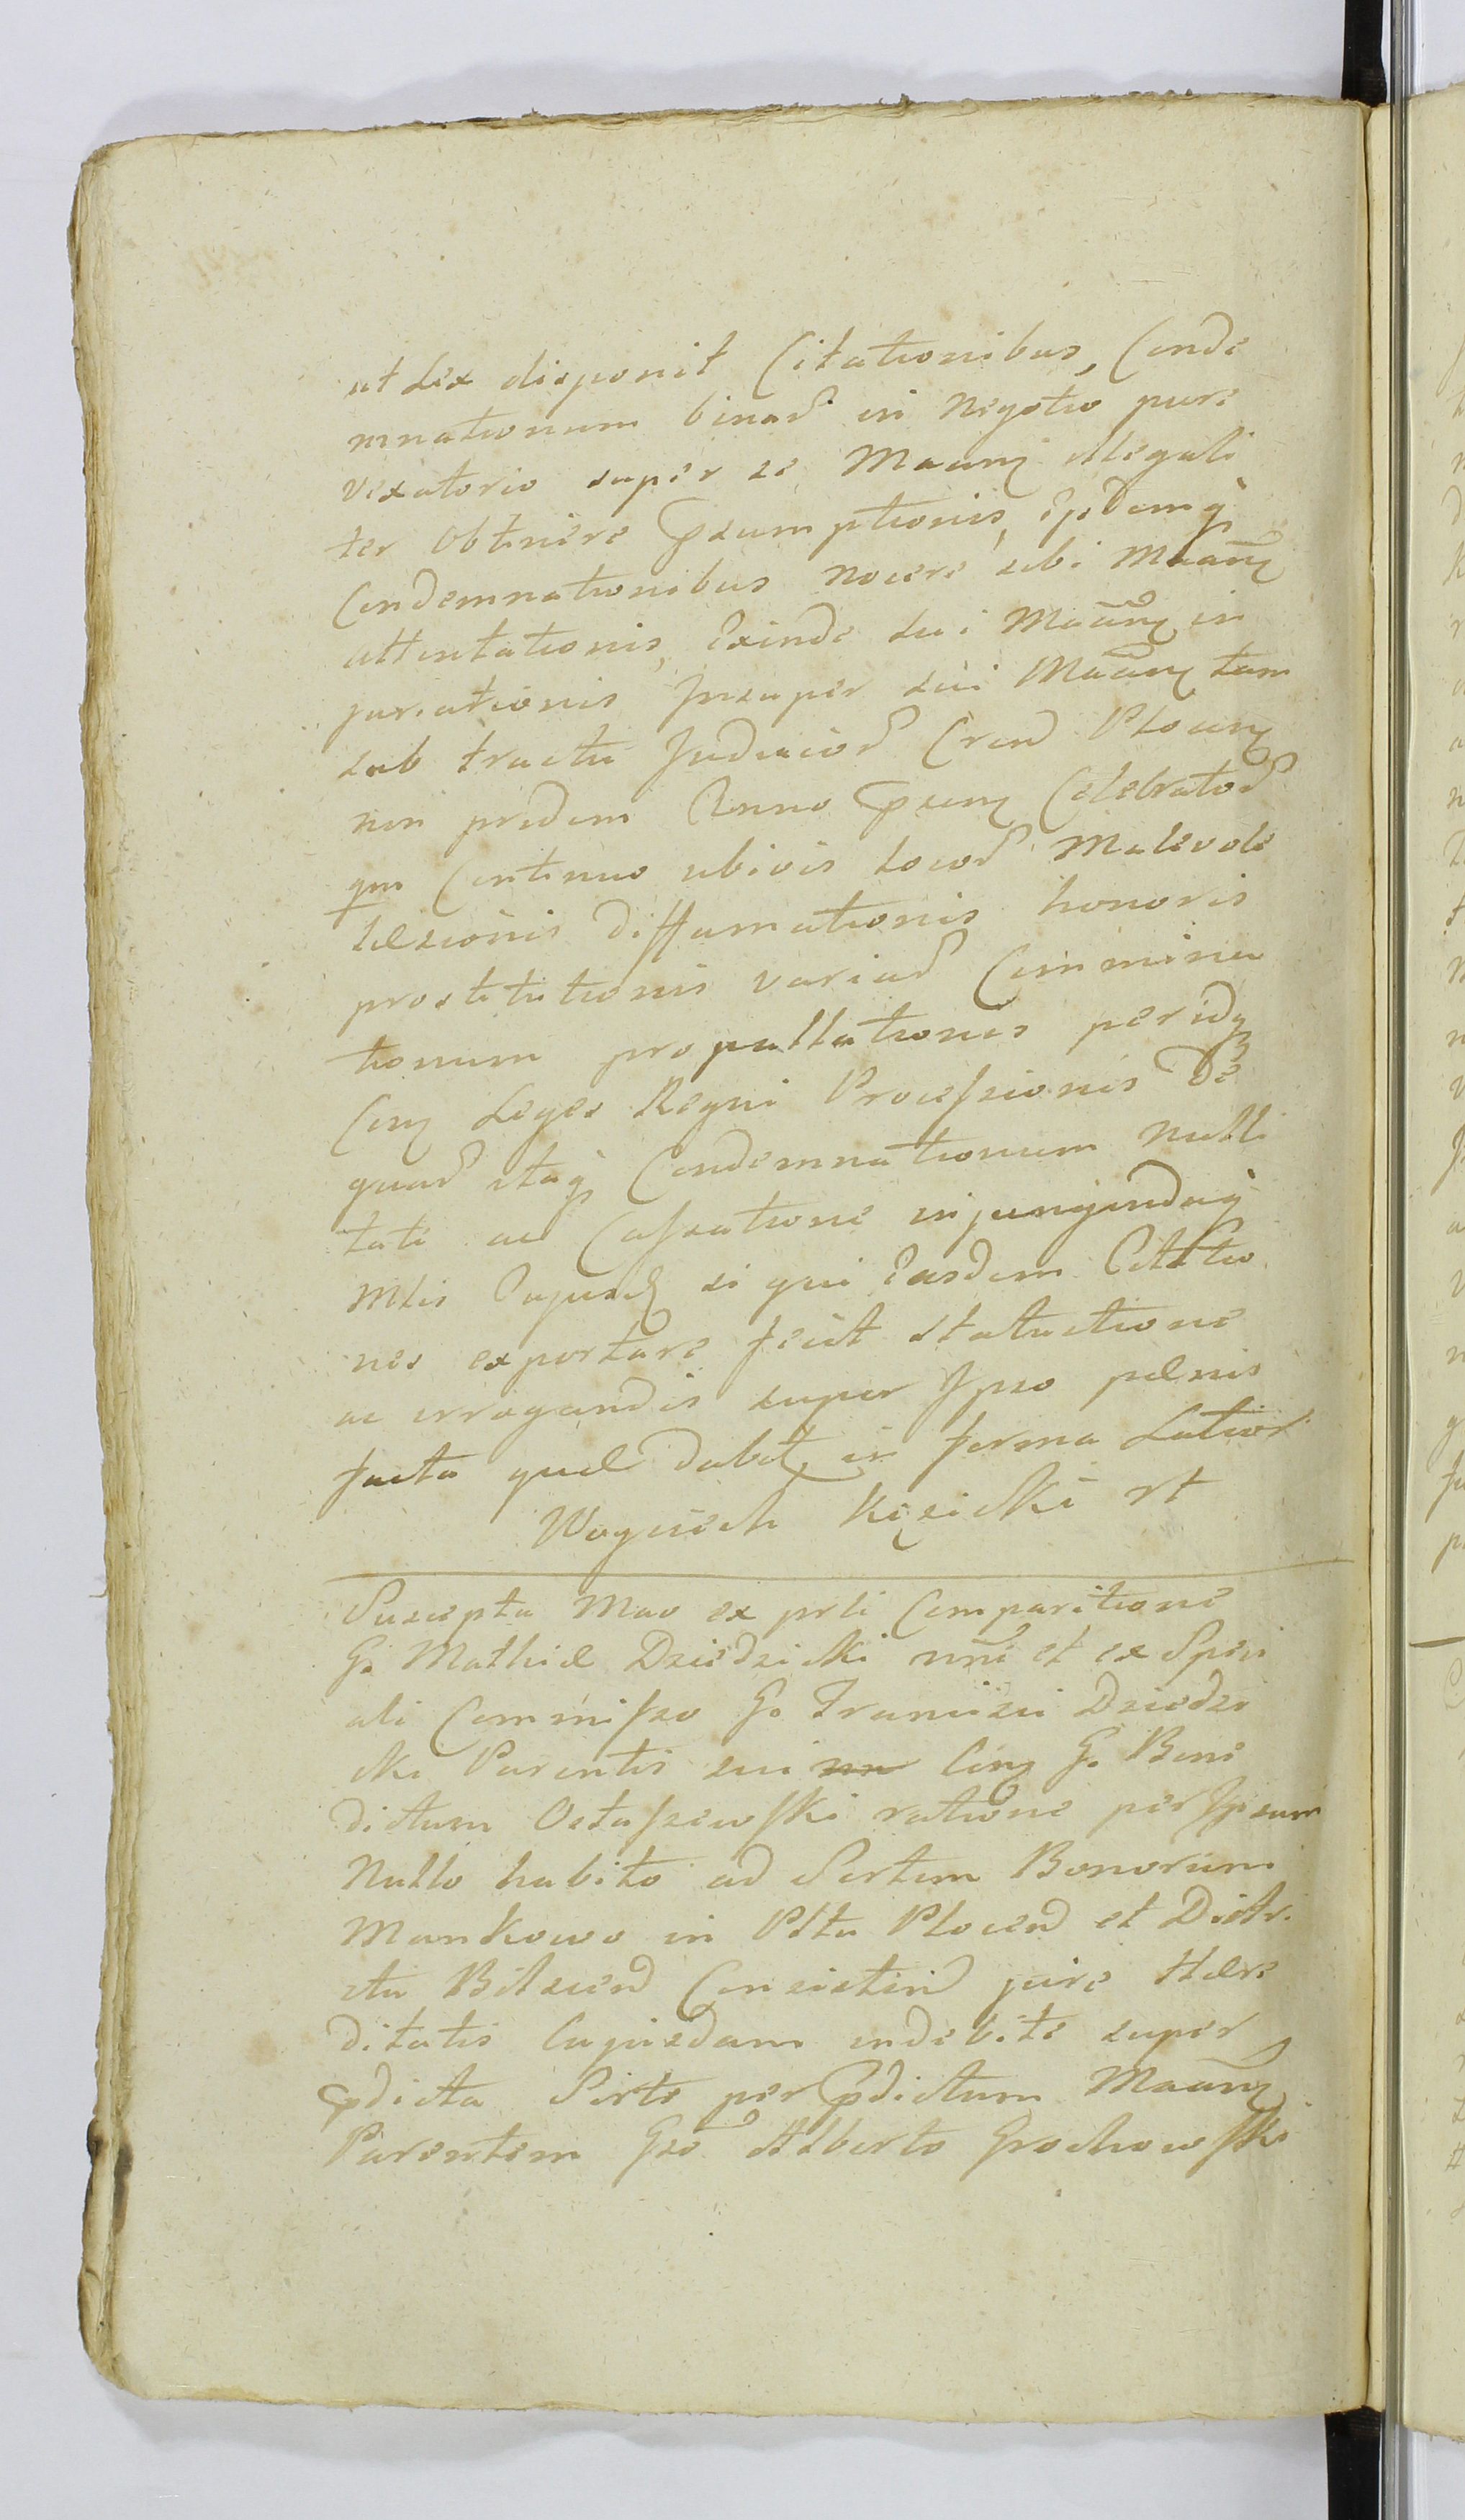 ut Lex disponit Citationibus, Conde
mnationum binar in Negotio pure
vexatorio super se Maanz illegali
ter obtinere Psumptionis, Eisdemq
Condemnationibus nocere sibi Maanz
attentationis, Exinde sui Maanz in
juriationis Insuper sui Maanz tam
sub tractu Judicior Cren Plocen
non pridem Anno Psenz Celebrator
qm Continuo ubivis Locor Malevole
læsionis diffamationis honoris
prostitutionis variar Commina
tionum propallationis peridq
Conz Leges Regni Processionis De
quar itaq Condemnationum nulli
tati ac Cassatione injungendaq
Mtis si qui Easdem Citatio
nes exportare fecit statuitione
ac irrogandis super Ipso pænis
facta quæ dabit in forma Latior
Woyciech Kęsicki rt
Suscepta Mao ex prli Comparitione
G. Mathiæ Dziedzicki nni et ex Speci
ali Commisso G. Francisci Dziedzi
cki Parentis sui Conz G. Bene
dictum Ostaszewski ratione per Ipsum
Nullo habito ad Sortem Bonorum
Mankowo in Pltu Plocen et Distri
ctu Bielscen Consisten jure Hære
ditatis Cujusdam indebite super
Pdicta Sorte per Pdictum Maanz
Parentem Gso Alberto Grochowski